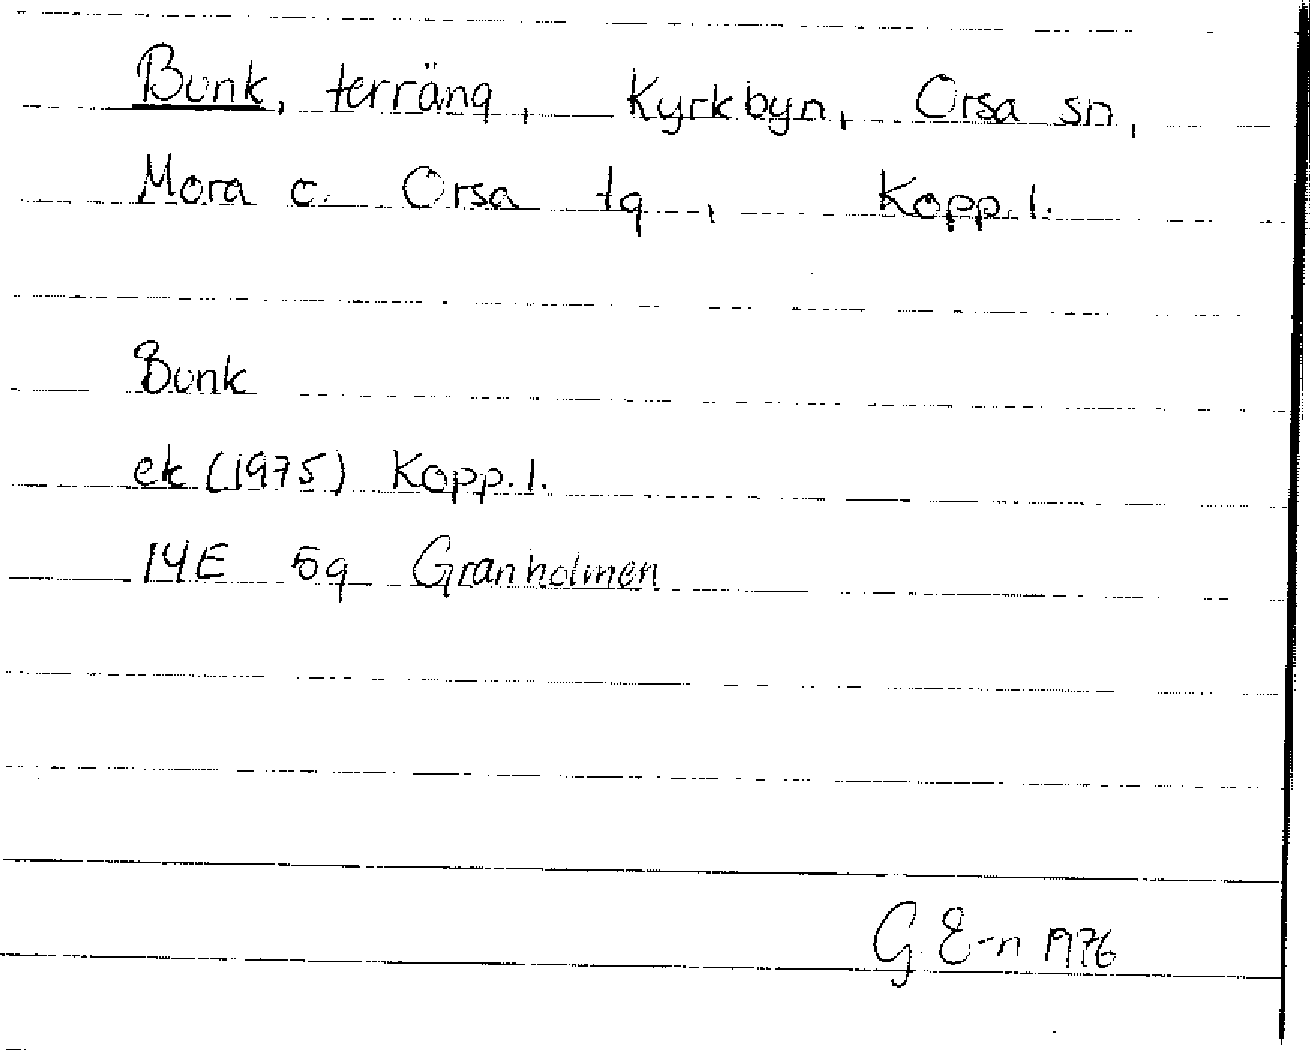 Bunk, terräng, Kyrkbyn, Orsa sn,
Mora o. Orsa tg, Kopp. l.
Bunk
ek (1975) Kopp. l.
14E 5g Granholmen
G E-n 1976